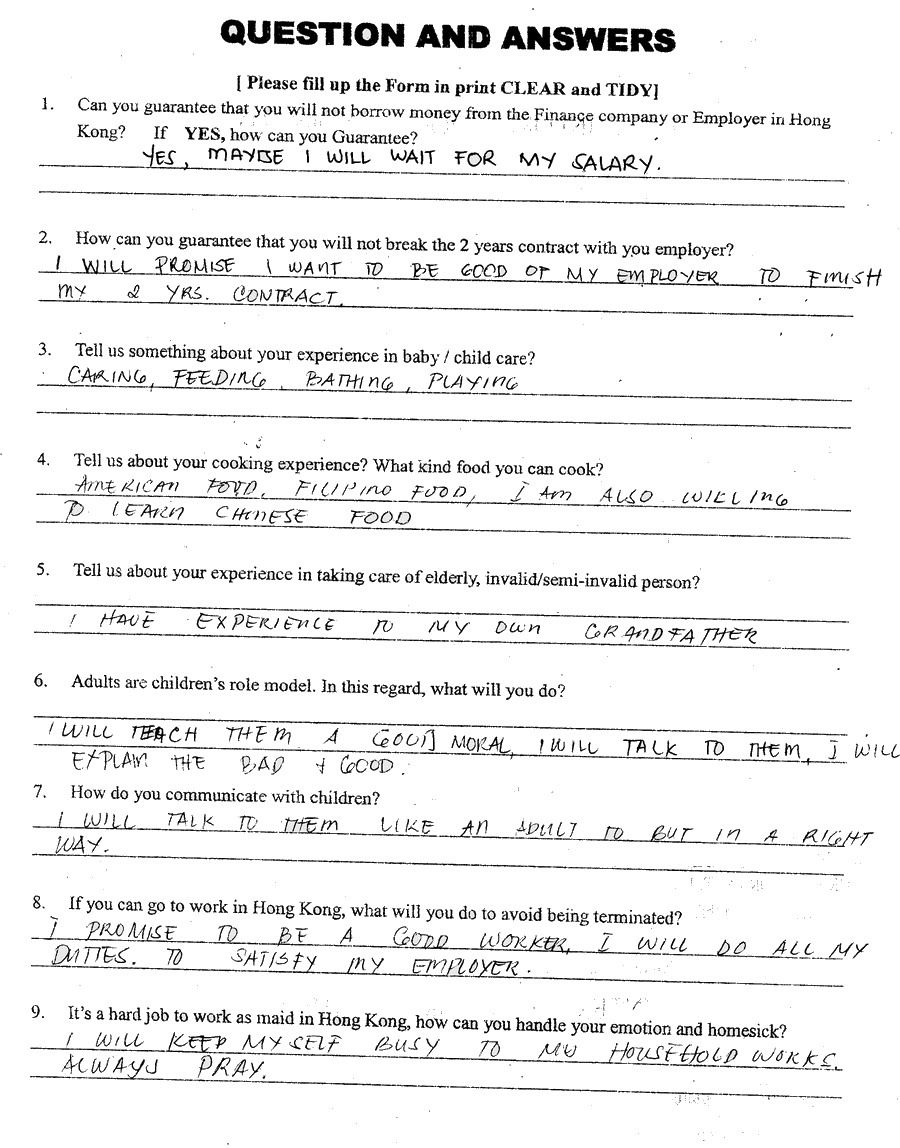 QUESTION AND ANSWERS
[ Please fill up the Form in print CLEAR and TIDY]
1. Can you guarantee that you will not borrow money from the Finance company or Employer in Hong
Kong? If YES, how can you Guarantee?
YES, MAYBE I WILL WAIT FOR MY SALARY.
2. How can you guarantee that you will not break the 2 years contract with you employer?
I WILL PROMISE I WANT TO BE GOOD OF MY EMPLOYER TO FINISH
MY 2 YRS. CONTRACT.
3. Tell us something about your experience in baby / child care?
CARING, FEEDING, BATHING, PLAYING
4. Tell us about your cooking experience? What kind food you can cook?
AMERICAN FOOD, FILIPINO FOOD, I AM ALSO WILLING
TO LEARN CHINESE FOOD
5. Tell us about your experience in taking care of elderly, invalid/semi-invalid person?
I HAVE EXPERIENCE TO MY OWN GRANDFATHER
6. Adults are children's role model. In this regard, what will you do?
I WILL TEACH THEM A GOOD MORAL, I WILL TALK TO THEM, I WILL
EXPLAIN THE BAD & GOOD.
7. How do you communicate with children?
I WILL TALK TO THEM LIKE AN ADULT TO BUT IN A RIGHT
WAY.
8. If you can go to work in Hong Kong, what will you do to avoid being terminated?
I PROMISE TO BE A GOOD WORKER, I WILL DO ALL MY
DUTIES. TO SATISFY MY EMPLOYER.
9. It's a hard job to work as maid in Hong Kong, how can you handle your emotion and homesick?
I WILL KEEP MYSELF BUSY TO MY HOUSEHOLD WORKS.
ALWAYS PRAY.